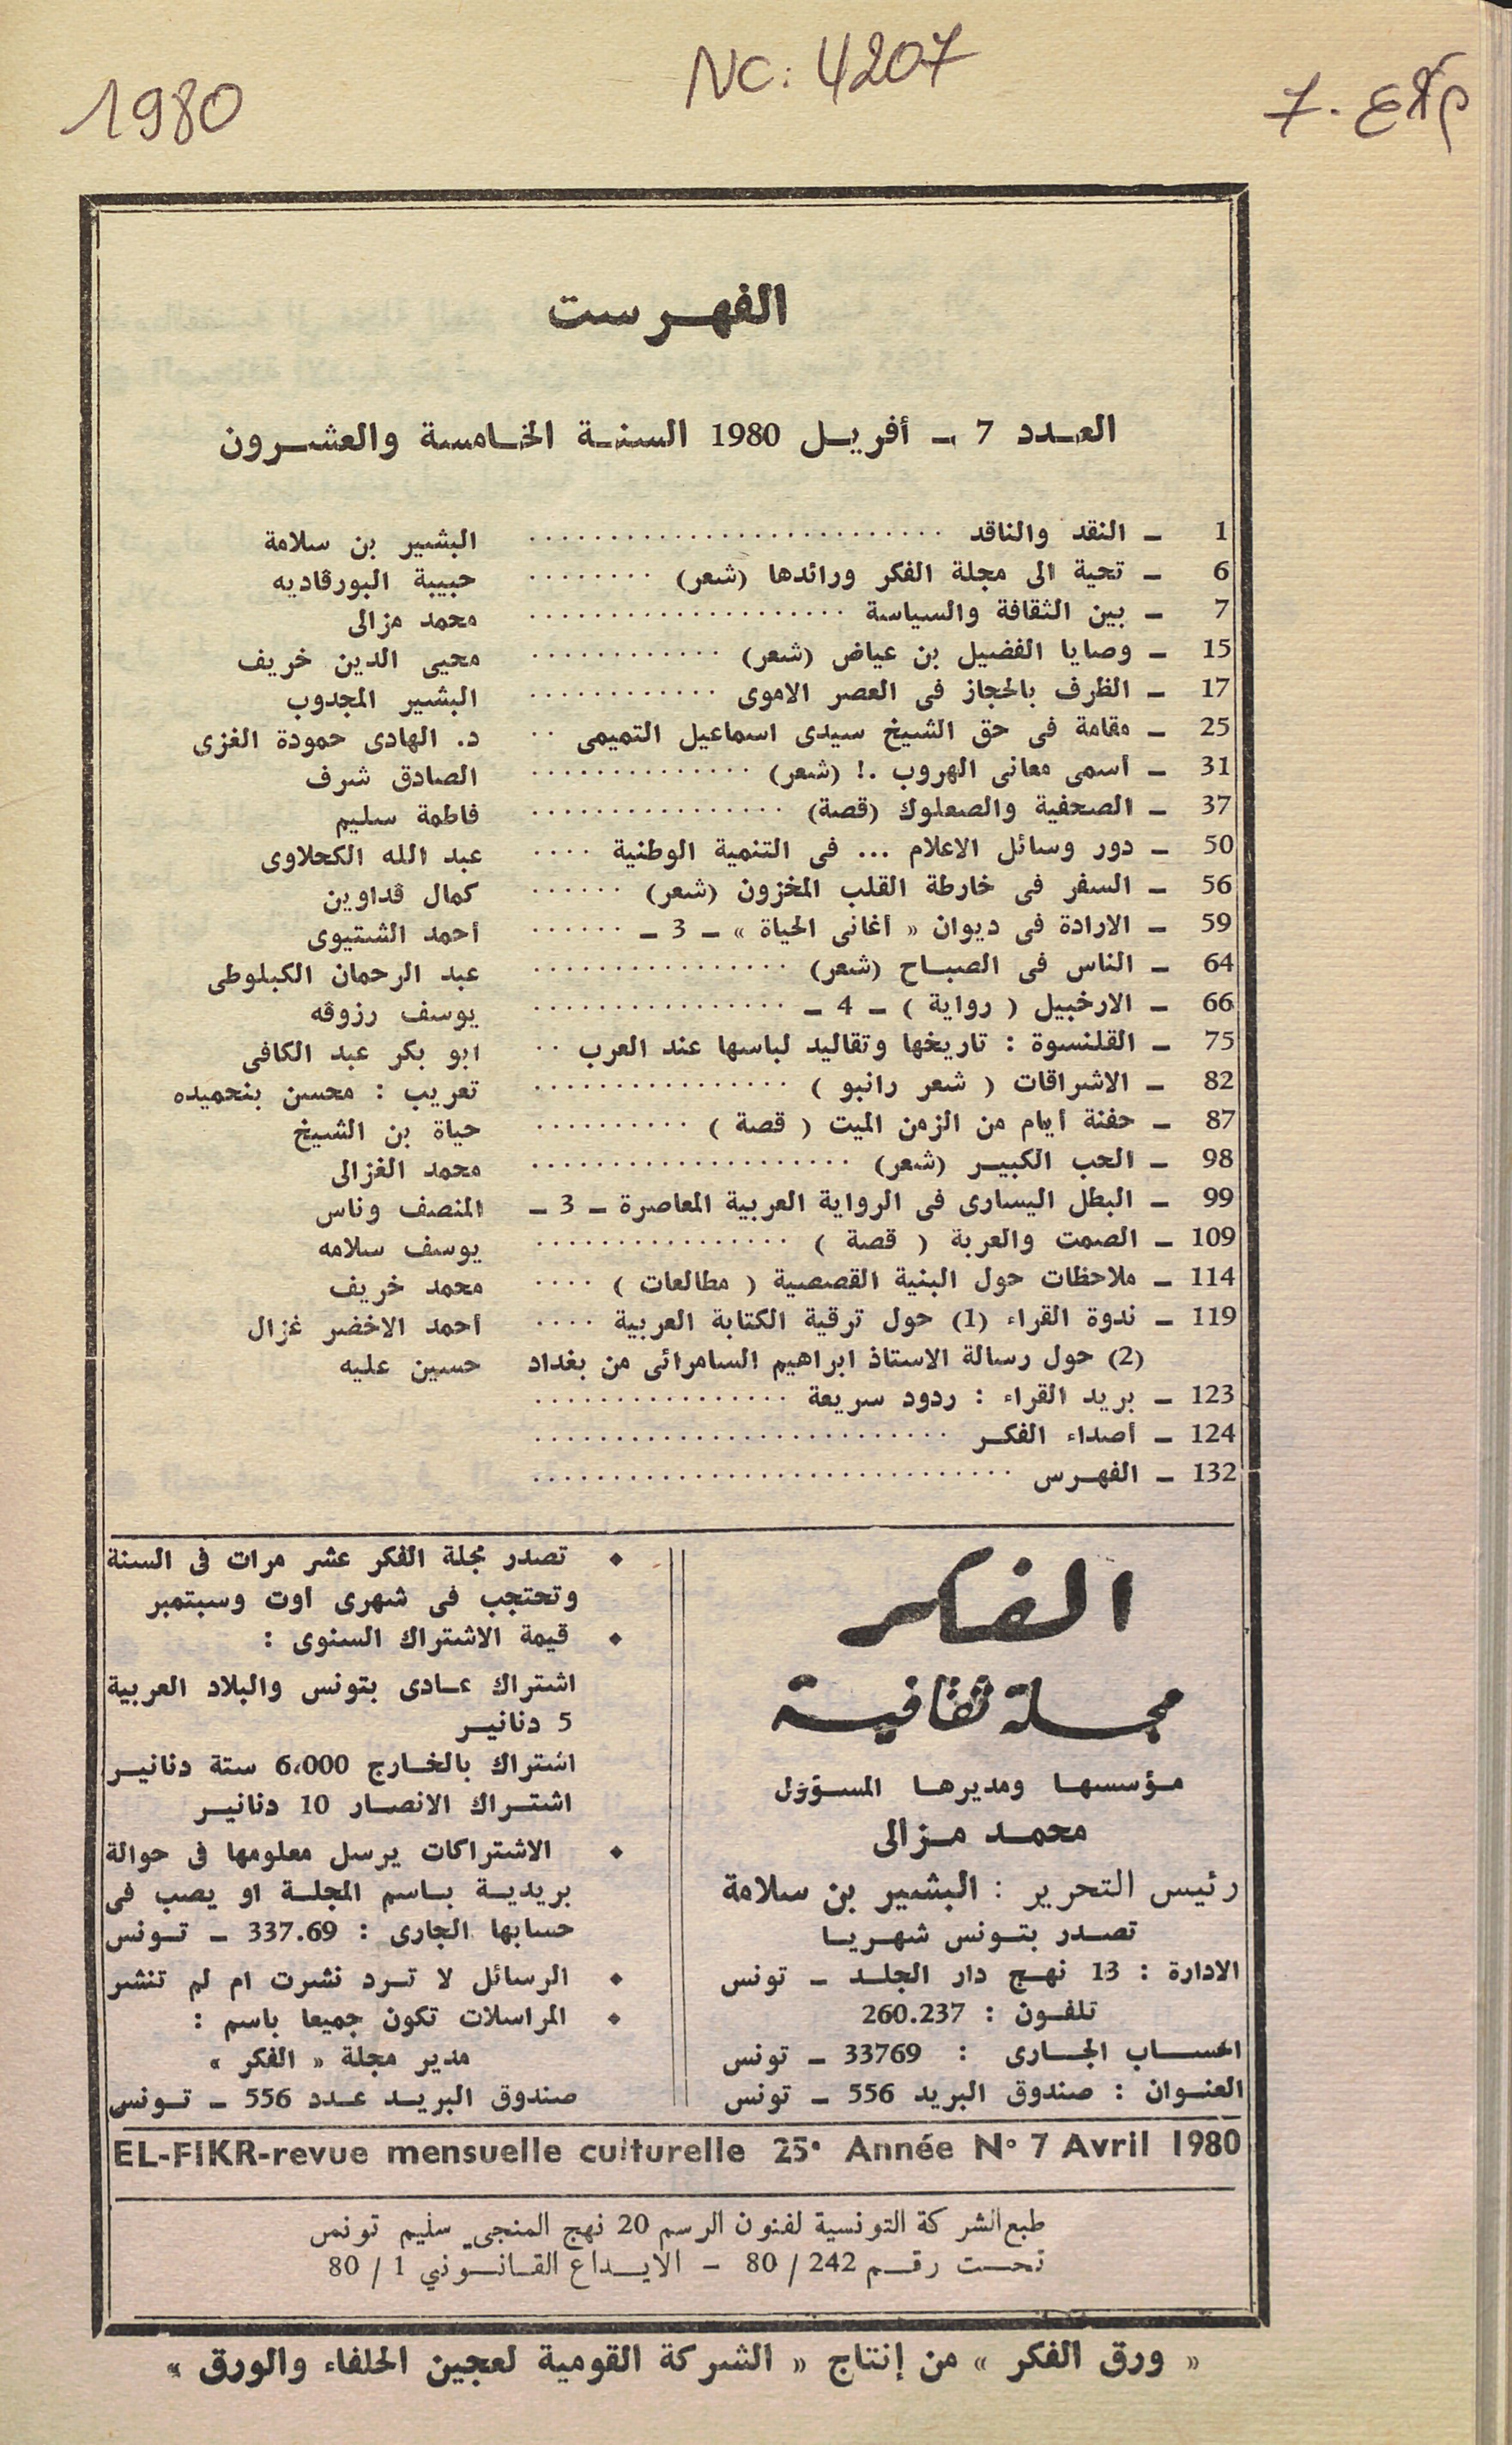 1980
NC: 4207
ع . 7
الفهرست
العدد 7 ـ أفريل 1980 السنة الخامسة والعشرون
1 ـ النقد والناقد .......................... البشير بن سلامة
6 ـ تحية الى مجلة الفكر ورائدها (شعر) ........ حبيبة البورڤاديه
7 ـ بين الثقافة والسياسة .................... محمد مزالى
15 ـ وصايا الفضيل بن عياض (شعر) ............ محيى الدين خريف
17 ـ الظرف بالحجاز فى العصر الاموى ............ البشير المجدوب
25 ـ مقامة فى حق الشيخ سيدى اسماعيل التميمى .. د. الهادى حمودة الغزى
31 ـ أسمى معانى الهروب .! (شعر) .............. الصادق شرف
37 ـ الصحفية والصعلوك (قصة) ................ فاطمة سليم
50 ـ دور وسائل الاعلام ... فى التنمية الوطنية .... عبد الله الكحلاوى
56 ـ السفر فى خارطة القلب المخزون (شعر) ...... كمال ڤداوين
59 ـ الارادة فى ديوان « أغانى الحياة » ـ 3 ـ ...... أحمد الشتيوى
64 ـ الناس فى الصباح (شعر) ................ عبد الرحمان الكبلوطى
66 ـ الارخبيل ( رواية ) ـ 4 ـ ................ يوسف رزوڤه
75 ـ القلنسوة : تاريخها وتقاليد لباسها عند العرب .. ابو بكر عبد الكافى
82 ـ الاشراقات ( شعر رانبو ) ................ تعريب : محسن بنحميده
87 ـ حفنة أيام من الزمن الميت ( قصة ) .......... حياة بن الشيخ
98 ـ الحب الكبير (شعر) .................... محمد الغزالى
99 ـ البطل اليسارى فى الرواية العربية المعاصرة ـ 3 ـ المنصف وناس
109 ـ الصمت والعربة ( قصة ) ................ يوسف سلامه
114 ـ ملاحظات حول البنية القصصية ( مطالعات ) .... محمد خريف
119 ـ ندوة القراء (1) حول ترقية الكتابة العربية .... أحمد الاخضر غزال
(2) حول رسالة الاستاذ ابراهيم السامرائى من بغداد حسين عليه
123 ـ بريد القراء : ردود سريعة ................
124 ـ أصداء الفكر ..........................
132 ـ الفهرس ..............................
الفكر
مجلة ثقافية
مؤسسها ومديرها المسؤول
محمد مزالى
رئيس التحرير : البشير بن سلامة
تصدر بتونس شهريا
الادارة : 13 نهج دار الجلد ـ تونس
تلفون : 260.237
الحساب الجارى : 33769 ـ تونس
العنوان : صندوق البريد 556 ـ تونس
♦ تصدر مجلة الفكر عشر مرات فى السنة
وتحتجب فى شهرى اوت وسبتمبر
♦ قيمة الاشتراك السنوى :
اشتراك عادى بتونس والبلاد العربية
5 دنانير
اشتراك بالخارج 6،000 ستة دنانير
اشتراك الانصار 10 دنانير
♦ الاشتراكات يرسل معلومها فى حوالة
بريدية باسم المجلة او يصب فى
حسابها الجارى : 337.69 ـ تونس
♦ الرسائل لا ترد نشرت ام لم تنشر
♦ المراسلات تكون جميعا باسم :
مدير مجلة « الفكر »
صندوق البريد عدد 556 ـ تونس
EL-FIKR-revue mensuelle culturelle 25e Année N° 7 Avril 1980
طبع الشركة التونسية لفنون الرسم 20 نهج المنجي سليم تونس
تحت رقم 242 / 80 - الايداع القانوني 1 / 80
« ورق الفكر » من إنتاج « الشركة القومية لعجين الحلفاء والورق »